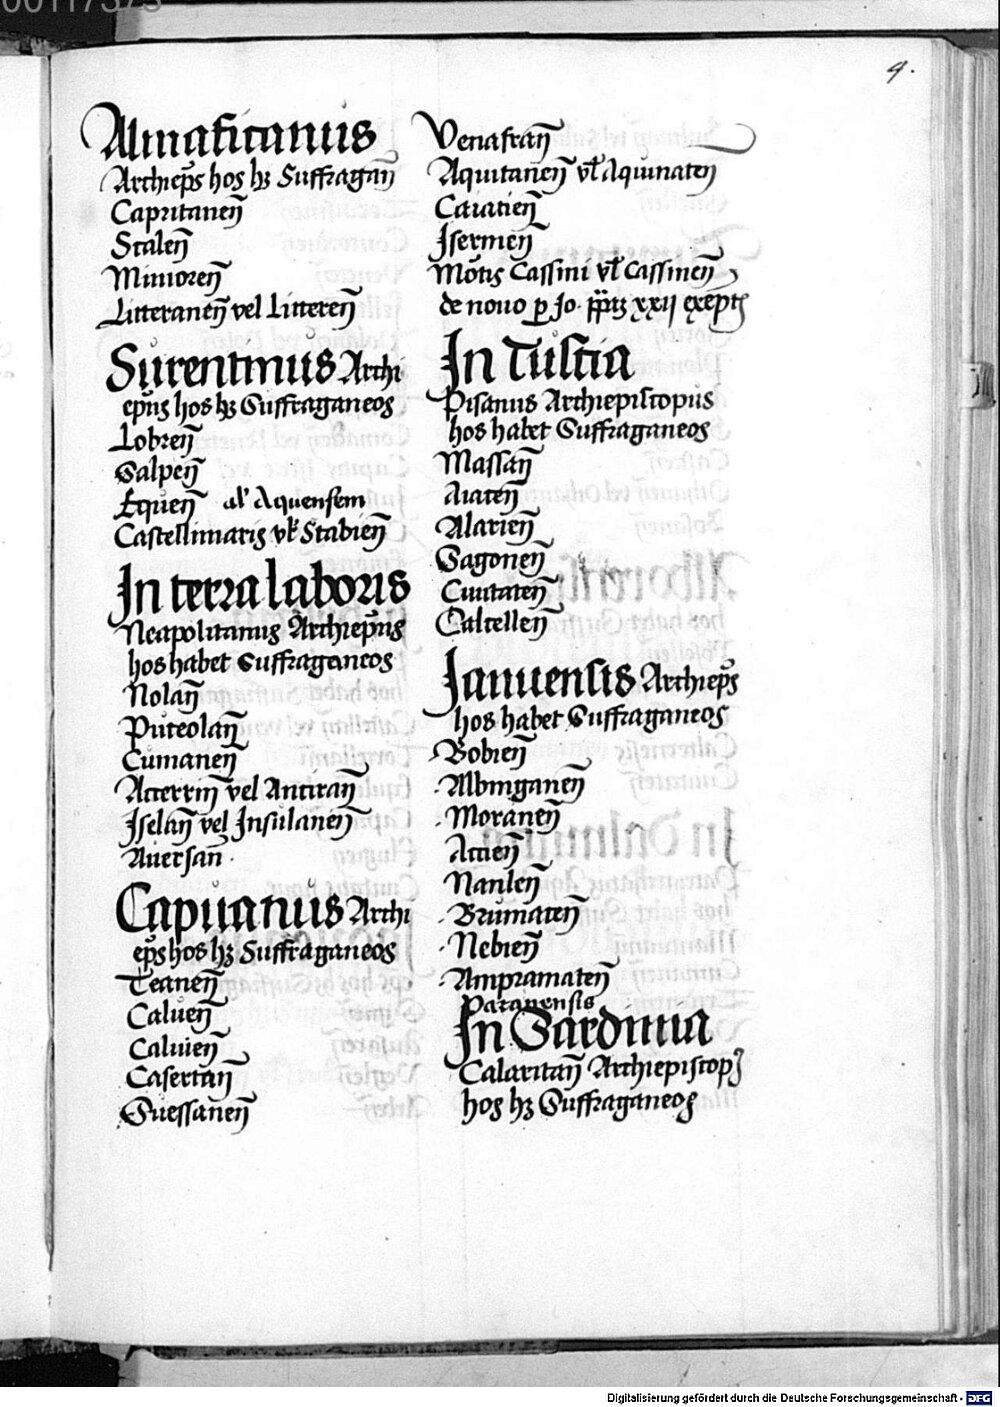 4.
Almafitanus
Archiep̄s hos hꝫ Suffragan̄
Capritaneñ
Scaleñ
Minoreñ
Litteraneñ vel Littereñ
Surentinus Archi
ep̄us hos hꝫ Suffraganeos
Lobreñ
Salpeñ
Equeñ al' Aquensem
Castellimaris vl̄ Stabieñ
In terra laboris
Neapolitanus Archiep̄us
hos habet Suffraganeos
Nolañ
Puteolañ
Cumaneñ
Acerriñ vel Antirañ
Iselañ vel Insulaneñ
Aversan̄.
Capuanus Archi
ep̄s hos hꝫ Suffraganeos
Teaneñ
Calueñ
Calinieñ
Casertañ
Suessaneñ
Venafrañ
Aquitaneñ vl̄ Aquinateñ
Caiacieñ
Iserineñ
Mōtis Cassini vl̄ Cassineñ
de nouo ꝑ Jo. pp̄ā xxij exēpt
In Tuscia
Pisanus Archiepiscopus
hos habet Suffraganeos
Massañ
Aiaceñ
Alarieñ
Sagoneñ
Ciuitateñ
Calcelleñ
Januensis Archiep̄s
hos habet Suffraganeos
Bobieñ
Albinganeñ
Moraneñ
Accieñ
Nauleñ
Brumateñ
Nebieñ
Ampramateñ
Paranensis
In Sardinia
Calaritañ Archiepiscop̄
hos hꝫ Suffraganeos
Digitalisierung gefördert durch die Deutsche Forschungsgemeinschaft - DFG